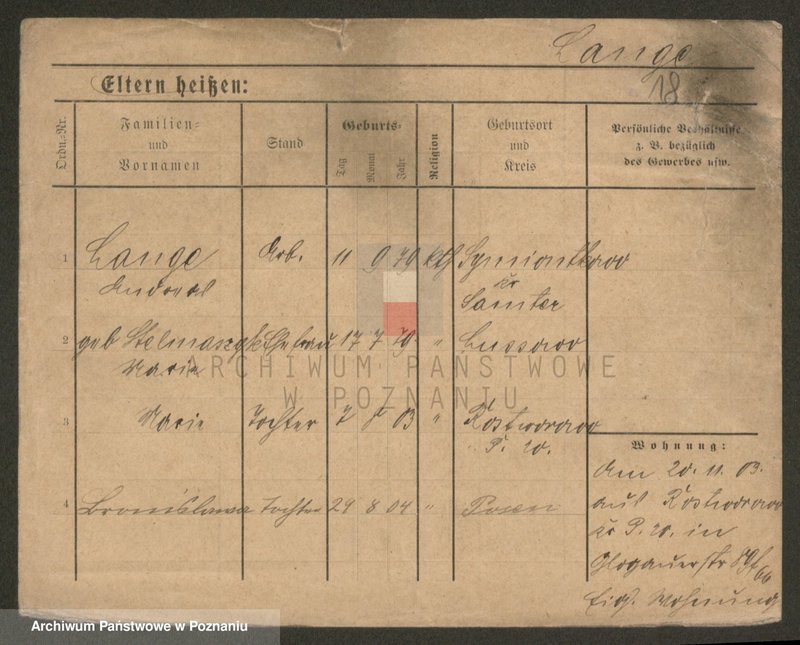 Lange
18
Eltern heißen:
Ordn.-Nr.
Familien- und Vornamen
Stand
Geburts-
Tag
Monat
Jahr
Religion
Geburtsort und Kreis
Persönliche Verhältnisse
z. B. bezüglich
des Gewerbes usw.
1 Lange Arb. 11 9 79 kth
Andreas
Kr Samter
2 geb Stelmaszyk Ehefrau 17 7 79 "
Marie
3 Marie Tochter 7 03 " Rostworowo
P. W.
4 Bronislawa Tochter 29 8 04 " Posen
Wohnung:
Am 20. 11. 03.
aus Rostworowo
Kr P. W. in
Glogauerstr
Eig. Wohnung
ARCHIWUM PAŃSTWOWE
W POZNANIU
Archiwum Państwowe w Poznaniu